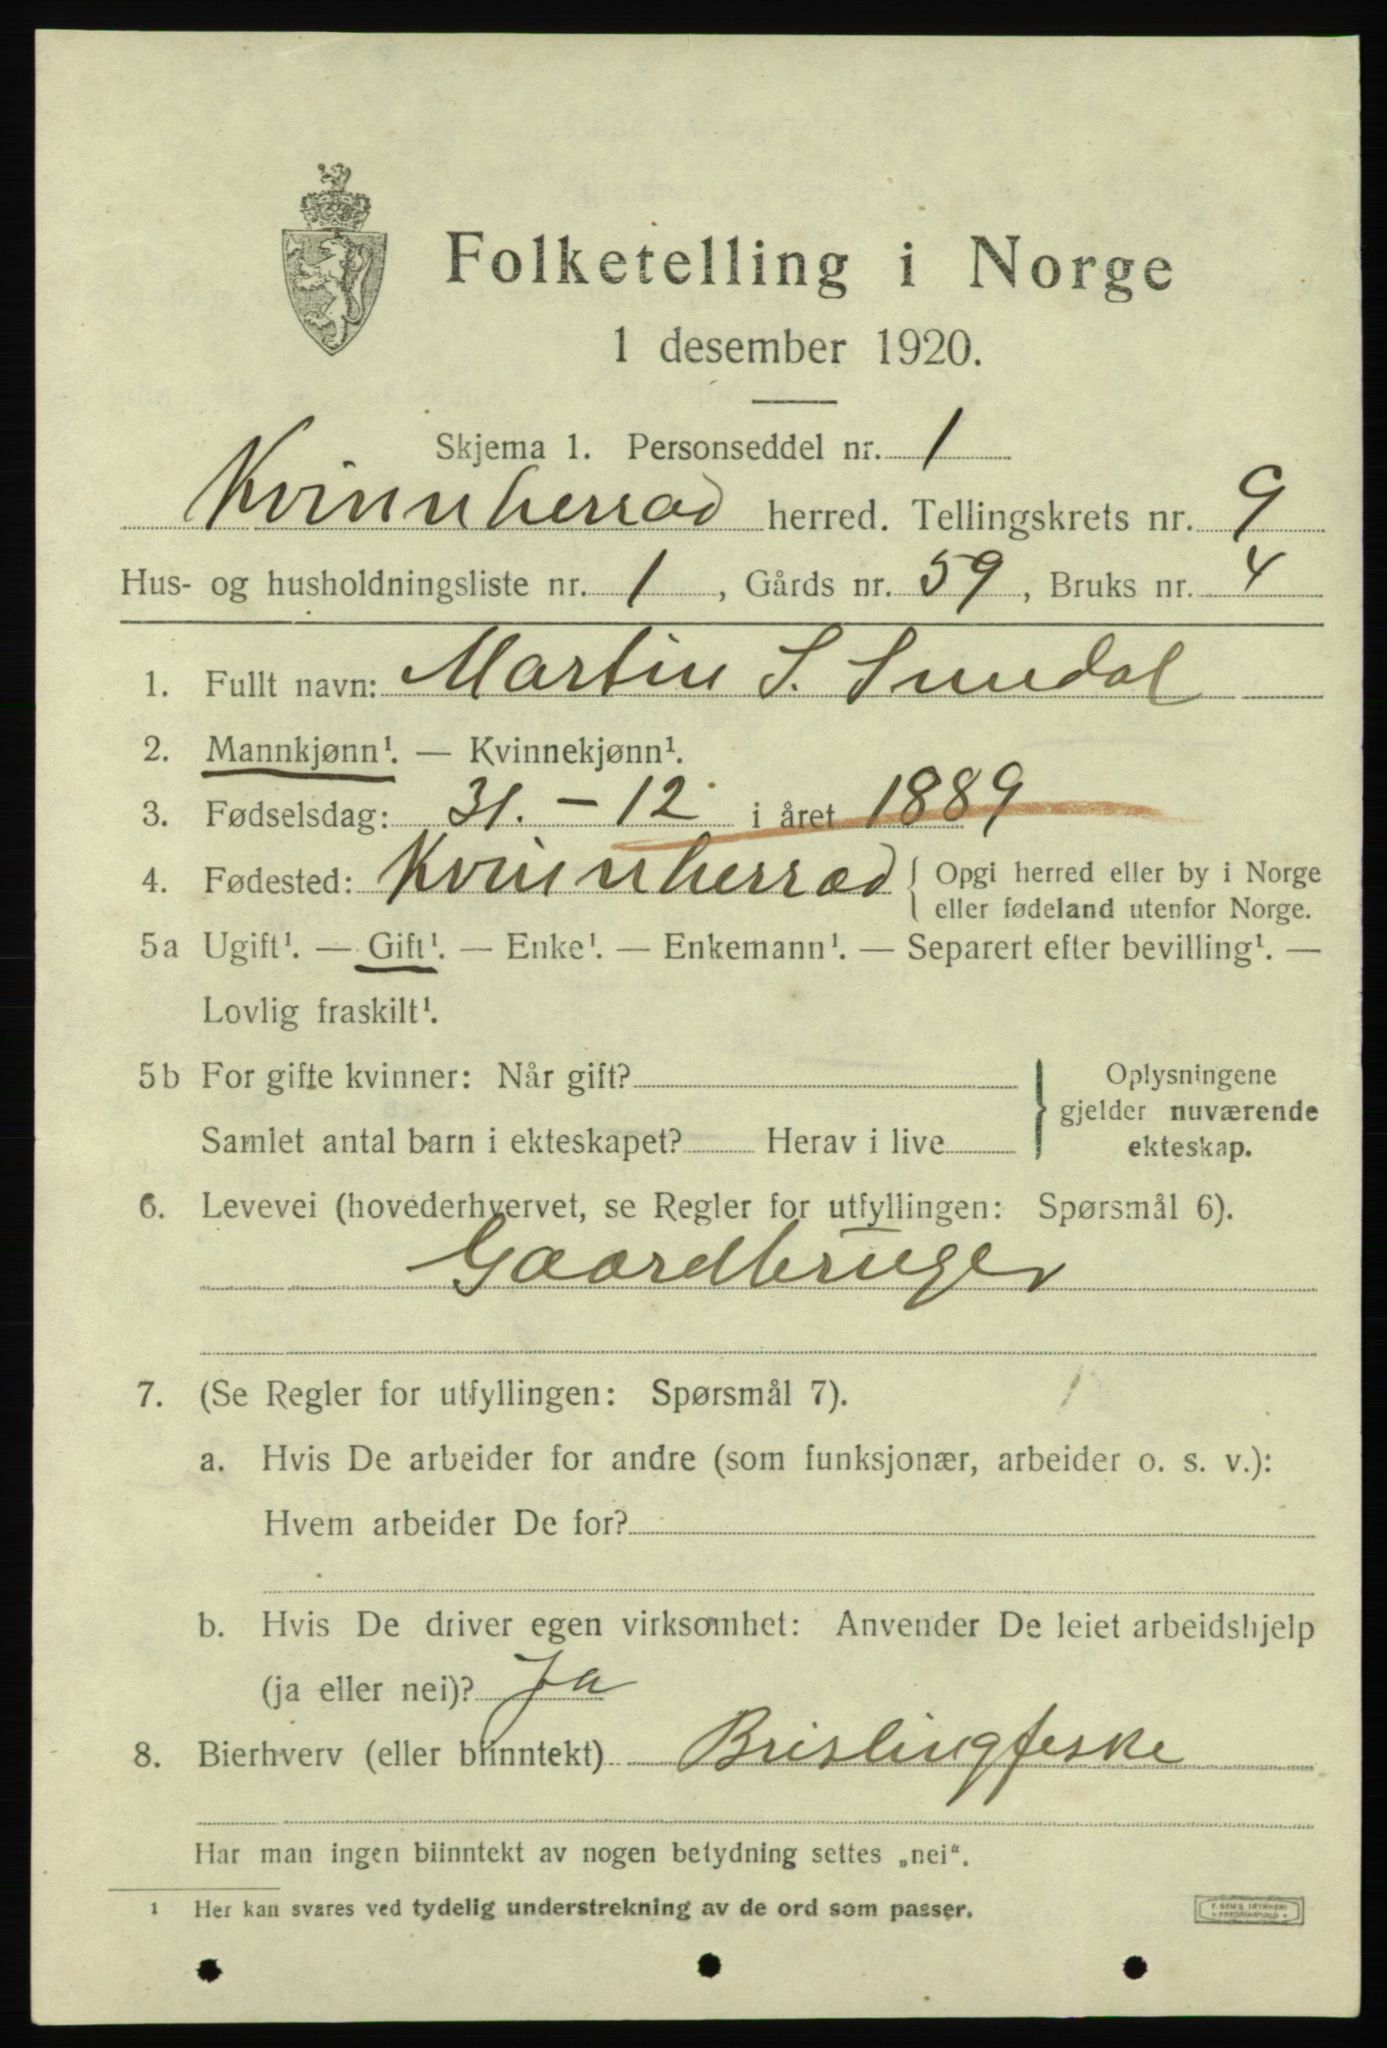 Folketelling i Norge
1 desember 1920.
Skjema 1. Personseddel nr. 1
Kvinnherrad herred. Tellingskrets nr. 9
Hus- og husholdningsliste nr. 1, Gårds nr. 59, Bruks nr. 4
1. Fullt navn: Martin S. Sundal
2. Mannkjønn¹. — Kvinnekjønn¹.
3. Fødselsdag: 31. – 12 i året 1889
4. Fødested: Kvinnherrad { Opgi herred eller by i Norge
eller fødeland utenfor Norge.
5a Ugift¹. — Gift¹. — Enke¹. — Enkemann¹. — Separert efter bevilling¹. —
Lovlig fraskilt¹.
5b For gifte kvinner: Når gift? } Oplysningene
gjelder nuværende
Samlet antal barn i ekteskapet? Herav i live
ekteskap.
6. Levevei (hovederhvervet, se Regler for utfyllingen: Spørsmål 6).
Gaardbruger
7. (Se Regler for utfyllingen: Spørsmål 7).
a. Hvis De arbeider for andre (som funksjonær, arbeider o. s. v.):
Hvem arbeider De for?
b. Hvis De driver egen virksomhet: Anvender De leiet arbeidshjelp
(ja eller nei)? Ja
8. Bierhverv (eller biinntekt) Brislingfeske
Har man ingen biinntekt av nogen betydning settes „nei“.
¹ Her kan svares ved tydelig understrekning av de ord som passer.